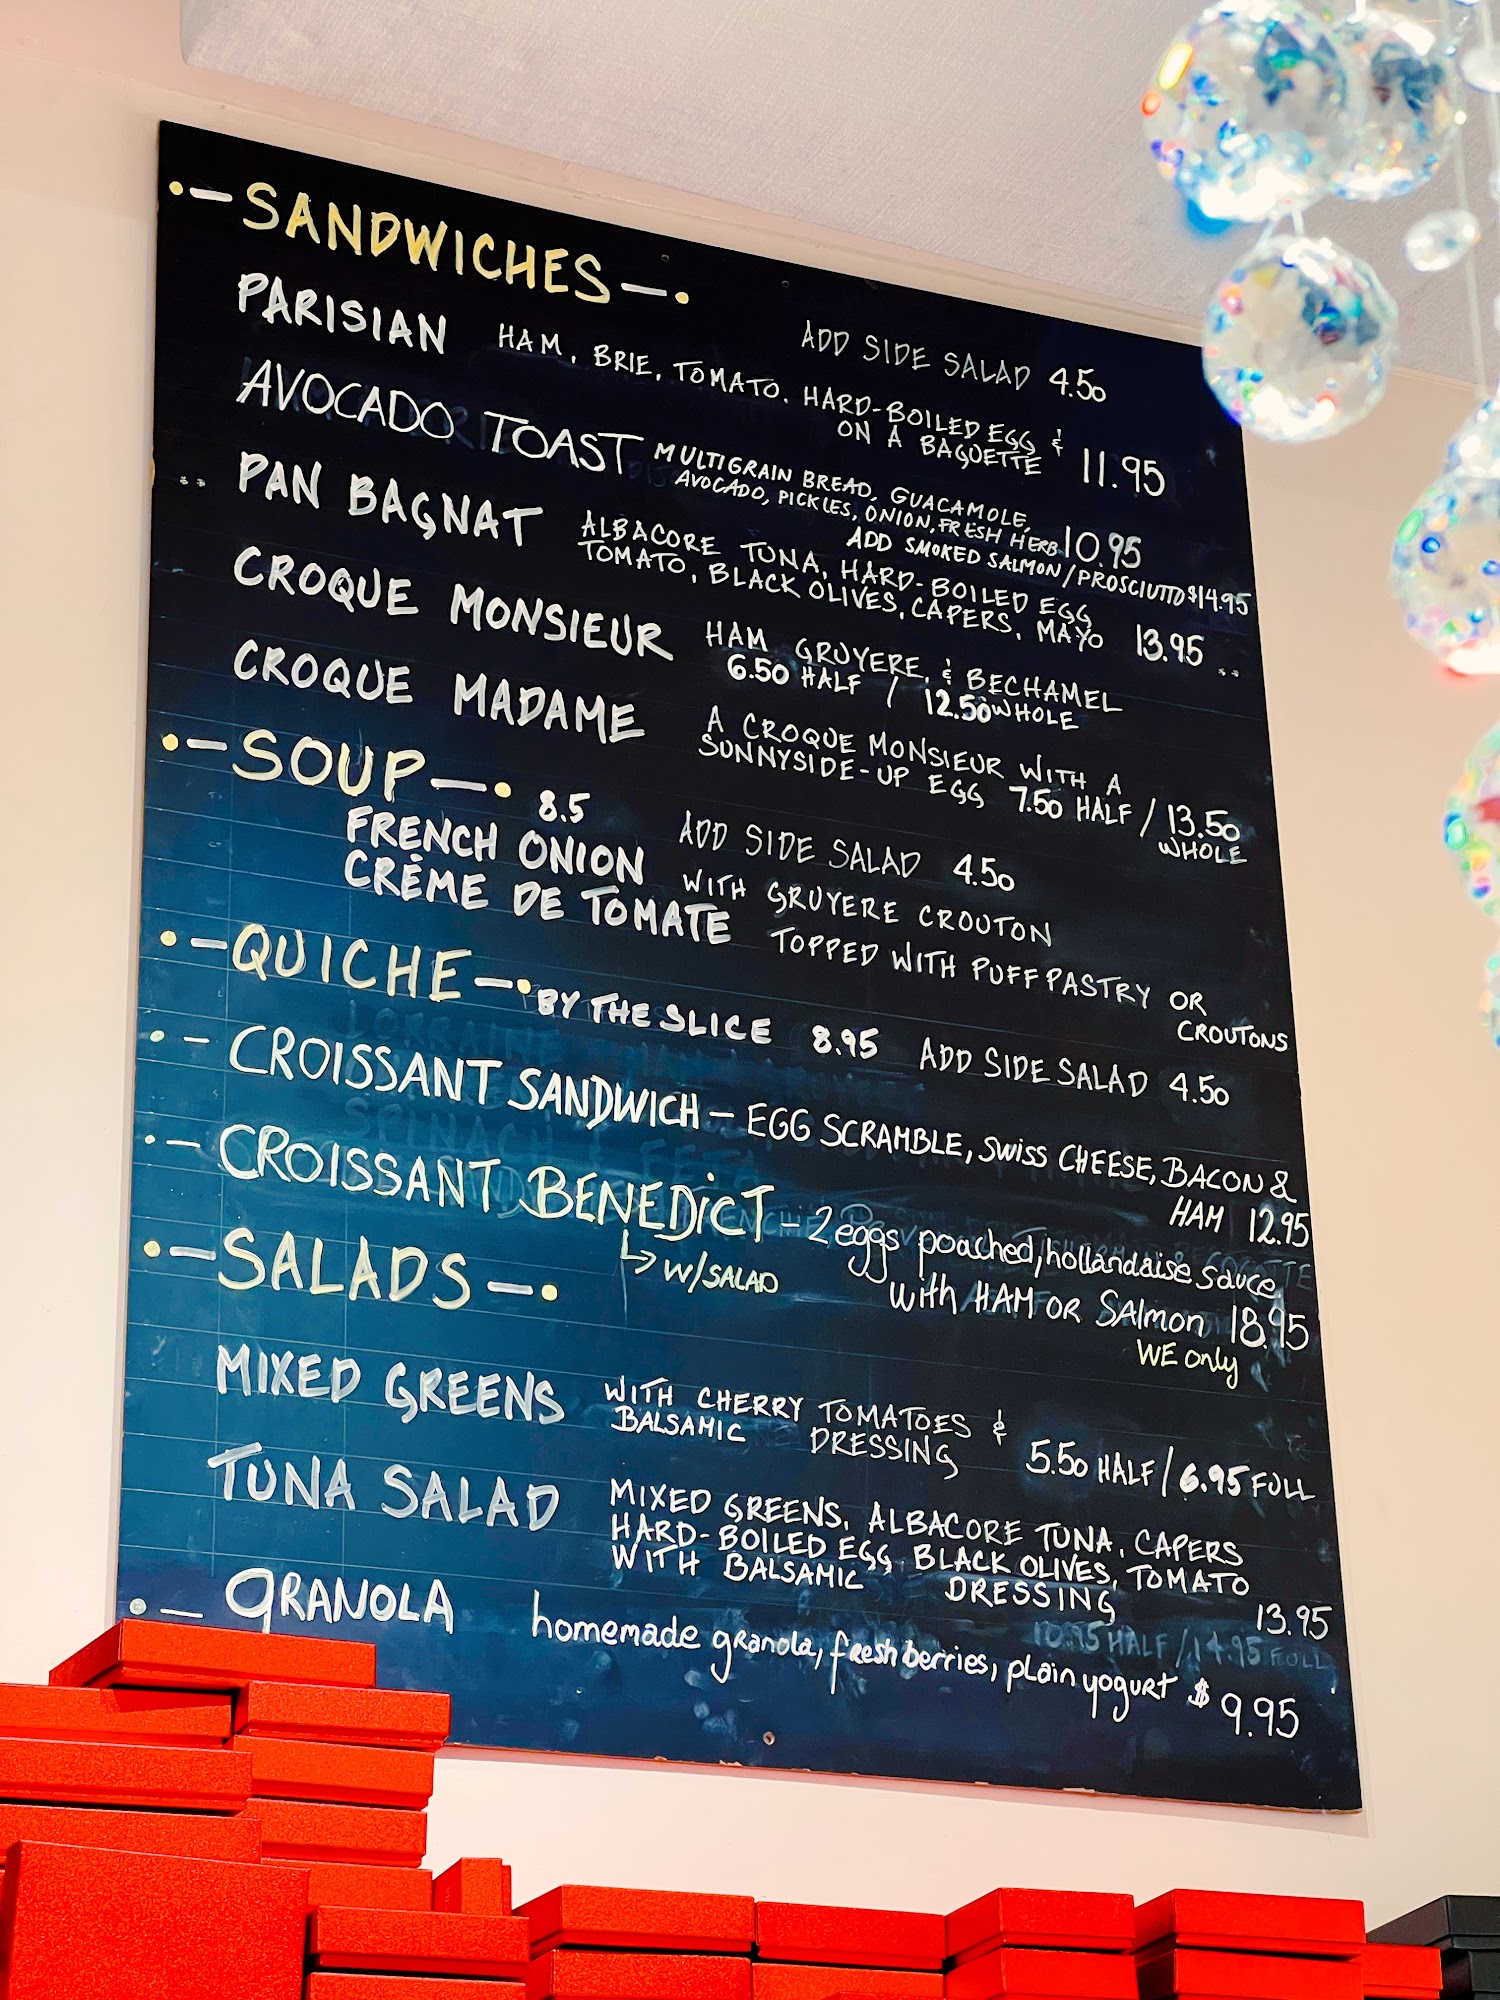 SANDWICHES
ADD SIDE SALAD 4.50
PARISIAN HAM, BRIE, TOMATO, HARD-BOILED EGG &
ON A BAGUETTE 11.95
AVOCADO TOAST MULTIGRAIN BREAD, GUACAMOLE,
AVOCADO, PICKLES, ONION, FRESH HERB 10.95
ADD SMOKED SALMON/PROSCIUTTO $14.95
PAN BAGNAT ALBACORE TUNA, HARD-BOILED EGG
TOMATO, BLACK OLIVES, CAPERS, MAYO 13.95
CROQUE MONSIEUR HAM GRUYERE, & BECHAMEL
6.50 HALF / 12.50 WHOLE
CROQUE MADAME A CROQUE MONSIEUR WITH A
SUNNYSIDE-UP EGG 7.50 HALF / 13.50
WHOLE
SOUP 8.5
ADD SIDE SALAD 4.50
FRENCH ONION WITH GRUYERE CROUTON
CRÈME DE TOMATE TOPPED WITH PUFF PASTRY OR
CROUTONS
QUICHE BY THE SLICE 8.95 ADD SIDE SALAD 4.50
- CROISSANT SANDWICH - EGG SCRAMBLE, SWISS CHEESE, BACON &
HAM 12.95
- CROISSANT BENEDICT - 2 eggs poached, hollandaise sauce
W/SALAD with HAM OR SAlmon 18.95
WE only
SALADS
MIXED GREENS WITH CHERRY TOMATOES &
BALSAMIC DRESSING 5.50 HALF / 6.95 FULL
TUNA SALAD MIXED GREENS, ALBACORE TUNA, CAPERS
HARD-BOILED EGG, BLACK OLIVES, TOMATO
WITH BALSAMIC DRESSING 13.95
10.95 HALF / 14.95 FULL
- GRANOLA homemade granola, fresh berries, plain yogurt $ 9.95